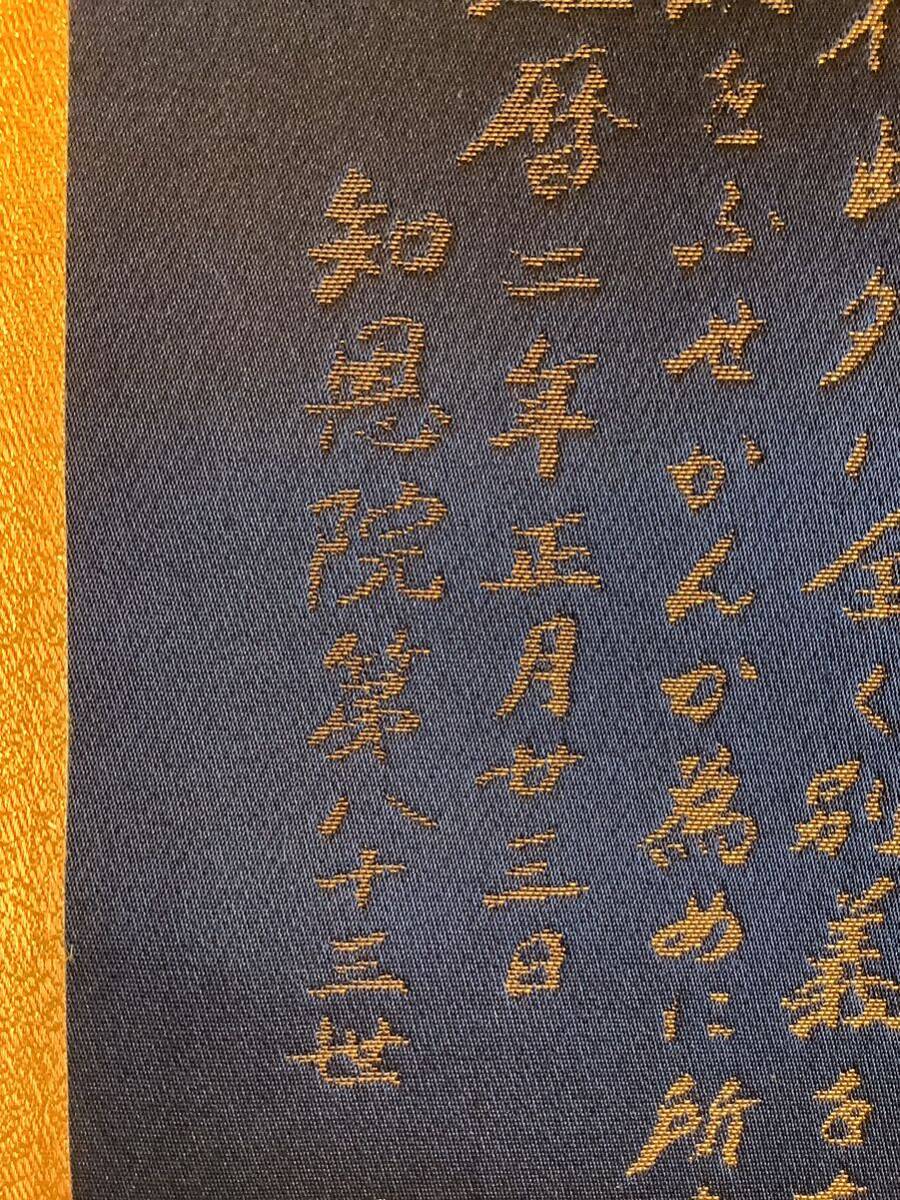 此外に全く別義を
をふせかんか為めに所
暦二年正月廿三日
知恩院第八十三世